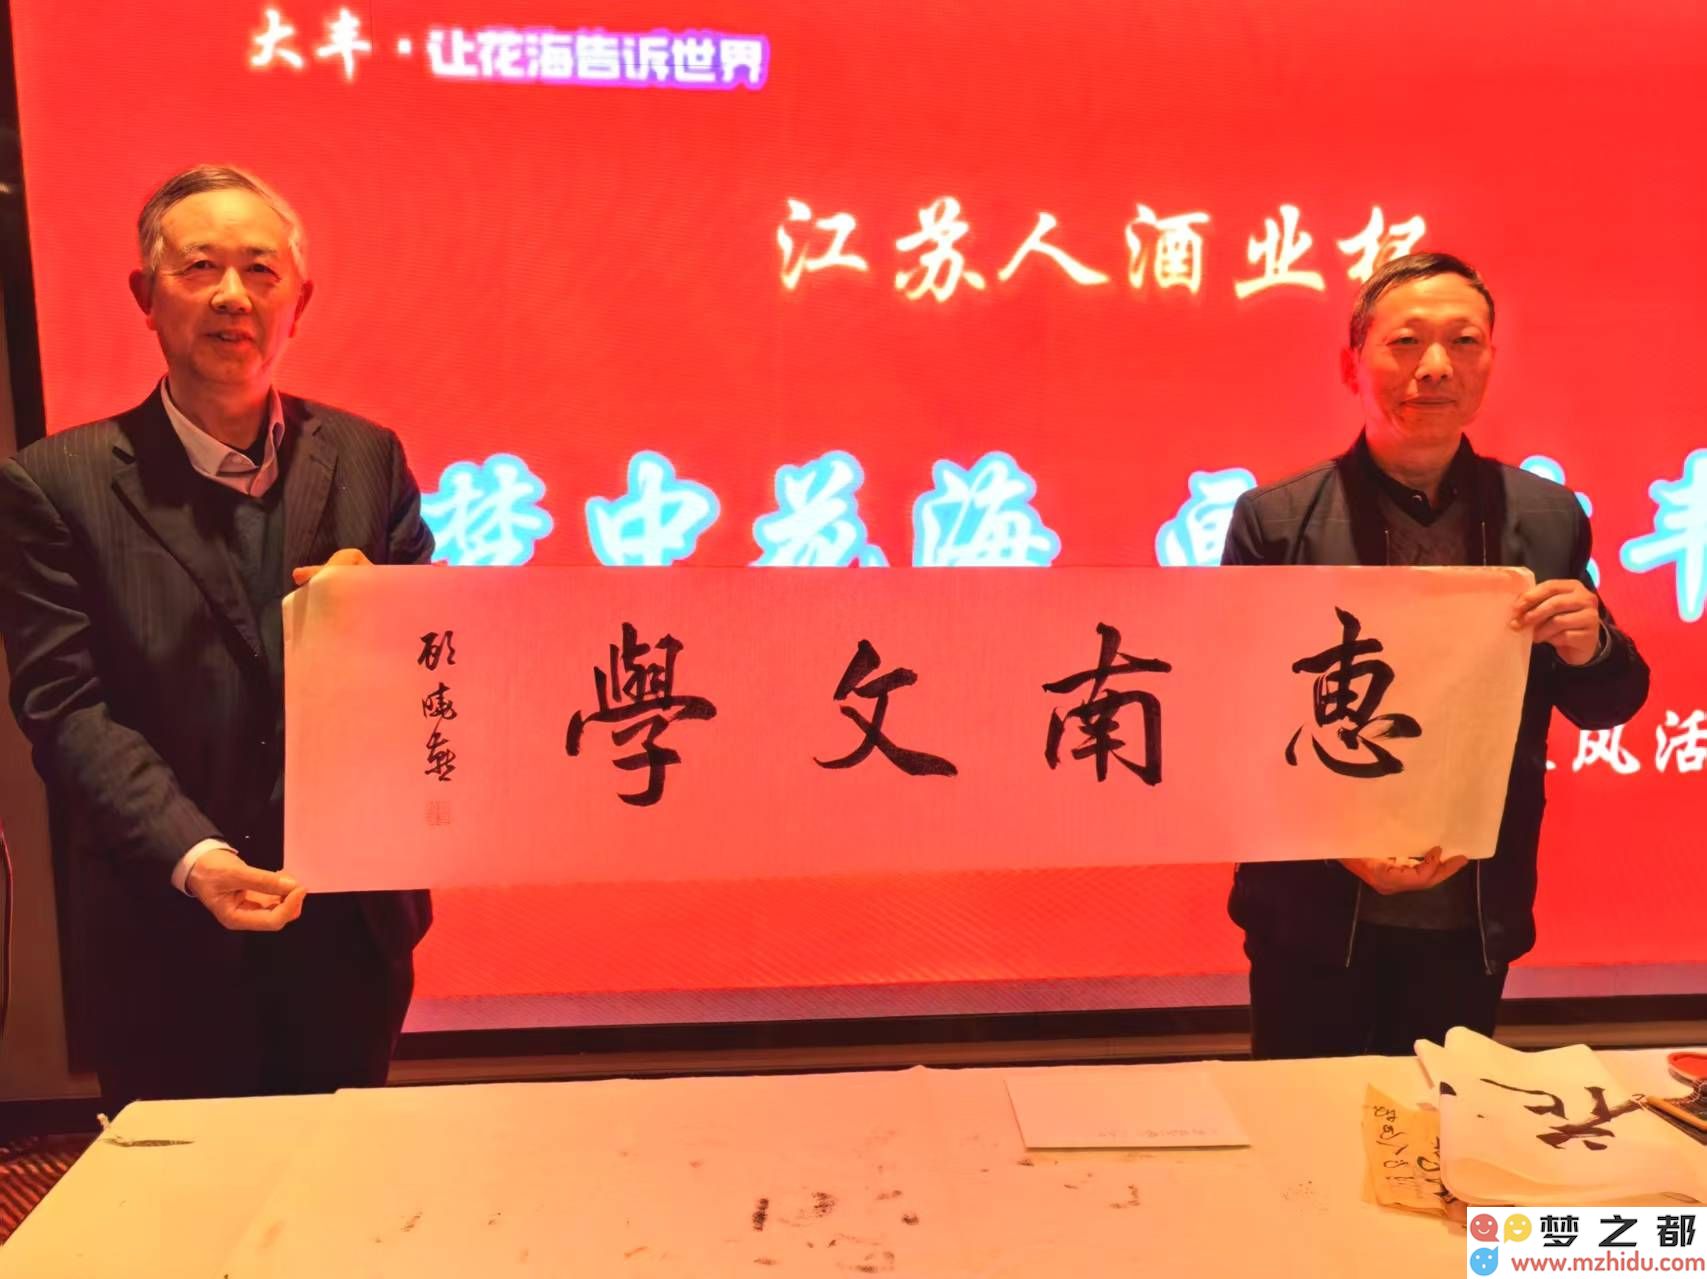 大丰·让花海告诉世界
江苏人酒业杯
梦中花海
丰
风活
惠南文學
顧曉燕
花
梦之都
www.mzhidu.com